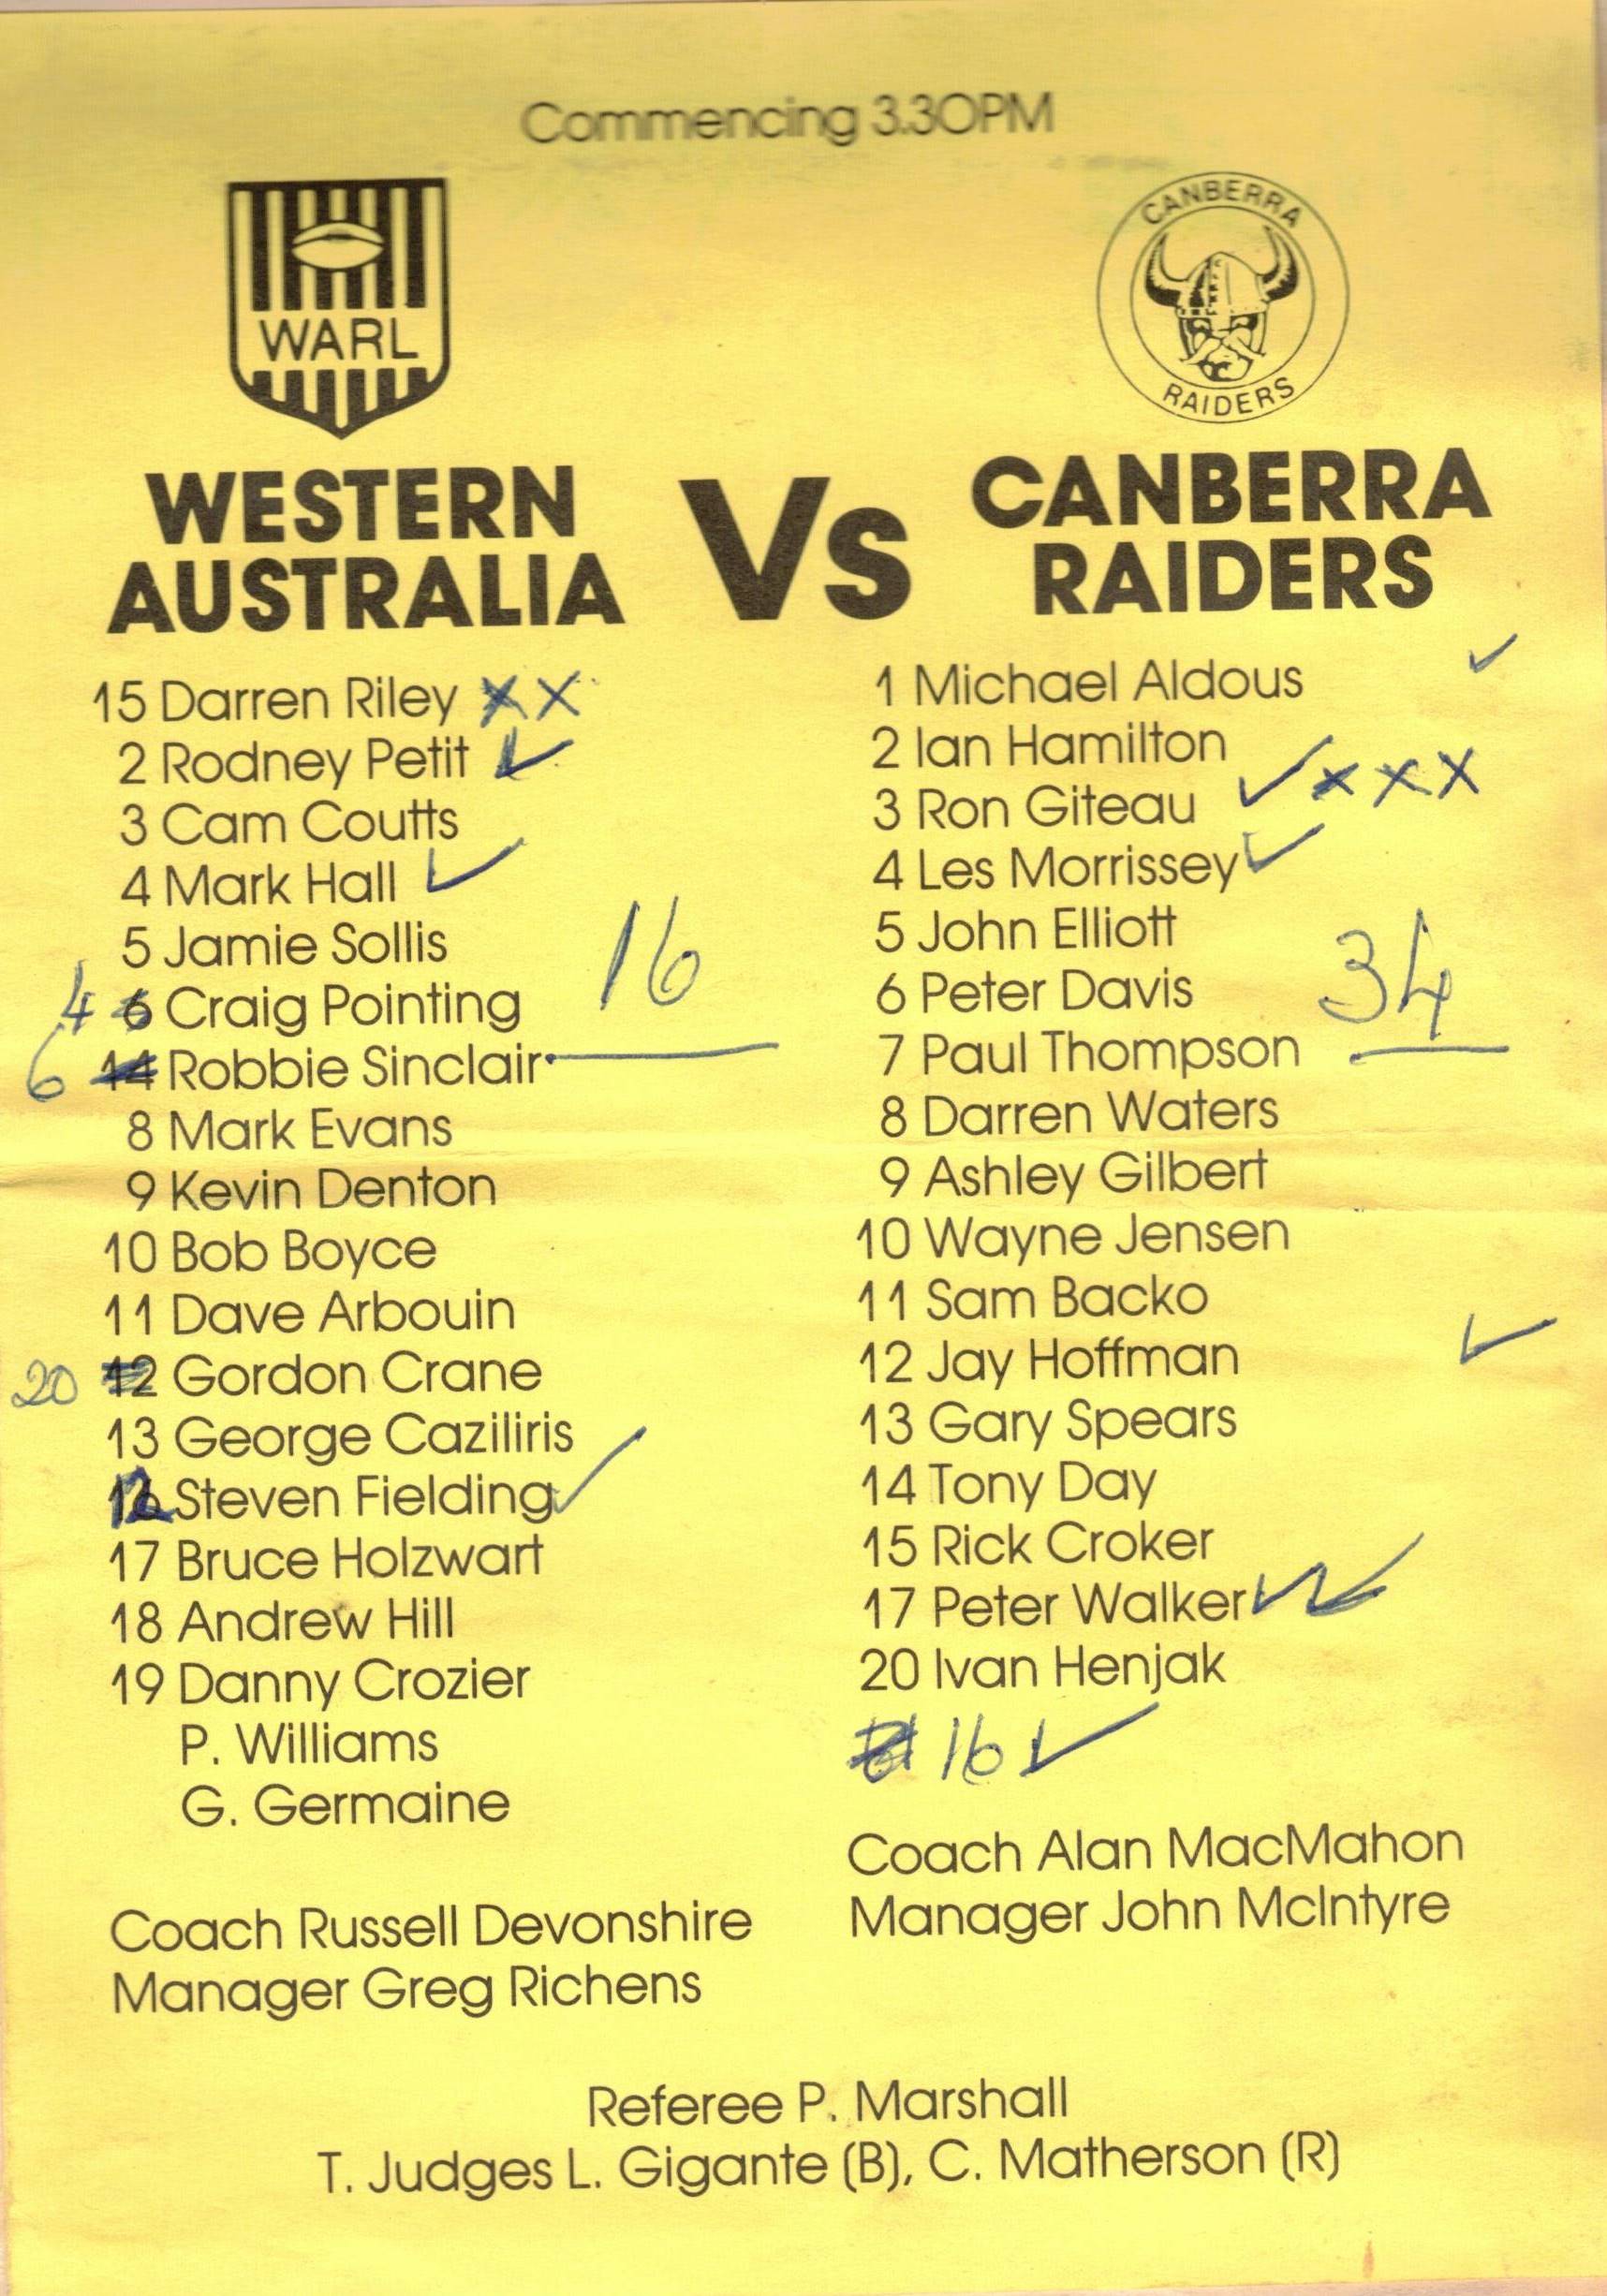 Commencing 3.30PM
WARL
CANBERRA
RAIDERS
WESTERN
AUSTRALIA
Vs
CANBERRA
RAIDERS
15 Darren Riley XX
2 Rodney Petit ✓
3 Cam Coutts
4 Mark Hall ✓
5 Jamie Sollis
16
4 6 Craig Pointing
6 14 Robbie Sinclair
8 Mark Evans
9 Kevin Denton
10 Bob Boyce
11 Dave Arbouin
20 12 Gordon Crane
13 George Caziliris
12 Steven Fielding ✓
17 Bruce Holzwart
18 Andrew Hill
19 Danny Crozier
P. Williams
G. Germaine
Coach Russell Devonshire
Manager Greg Richens
1 Michael Aldous ✓
2 Ian Hamilton
3 Ron Giteau ✓XXX
4 Les Morrissey ✓
5 John Elliott
34
6 Peter Davis
7 Paul Thompson
8 Darren Waters
9 Ashley Gilbert
10 Wayne Jensen
11 Sam Backo
12 Jay Hoffman ✓
13 Gary Spears
14 Tony Day
15 Rick Croker
17 Peter Walker ✓✓
20 Ivan Henjak
16 ✓
Coach Alan MacMahon
Manager John McIntyre
Referee P. Marshall
T. Judges L. Gigante (B), C. Matherson (R)